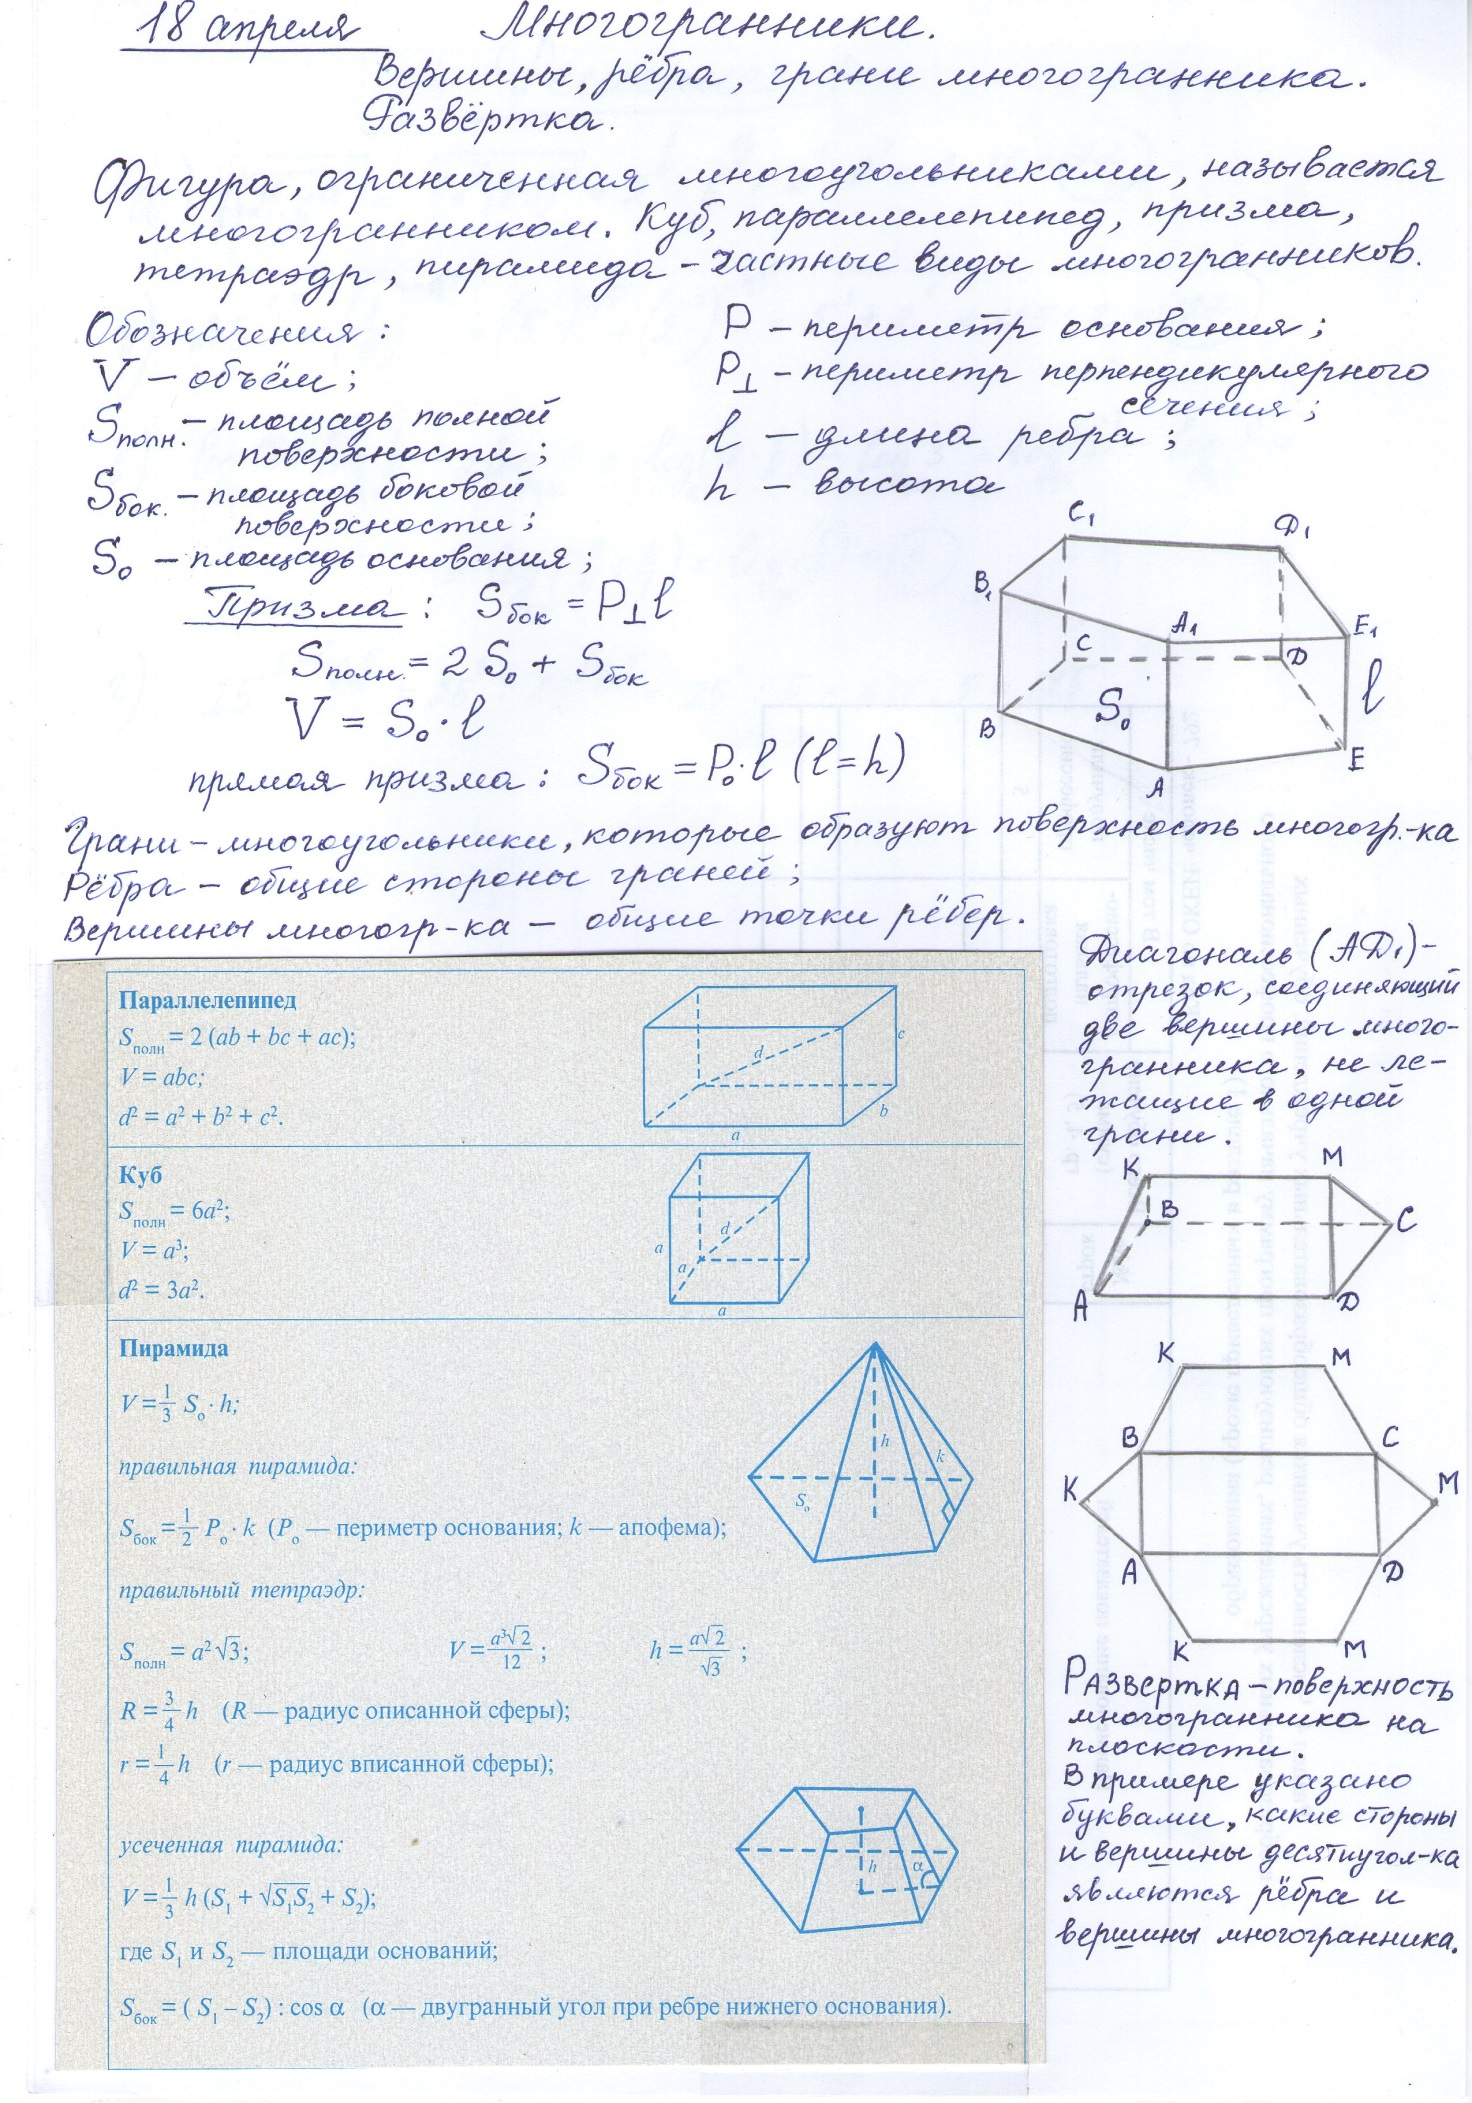 18 апреля Многогранники.
Вершины, рёбра, грани многогранника.
Развёртка.
Фигура, ограниченная многоугольниками, называется
многогранником. Куб, параллелепипед, призма,
тетраэдр, пирамида – частные виды многогранников.
Обозначения:
V – объём;
Sполн. – площадь полной
поверхности;
Sбок. – площадь боковой
поверхности;
S₀ – площадь основания;
P – периметр основания;
P⊥ – периметр перпендикулярного
сечения;
l – длина ребра;
h – высота
Призма: Sбок = P⊥l
Sполн. = 2S₀ + Sбок
V = S₀·l
прямая призма: Sбок = P₀·l (l=h)
C₁ D₁
B₁ A₁ E₁
C D l
S₀
B E
A
Грани – многоугольники, которые образуют поверхность многогр.-ка
Рёбра – общие стороны граней;
Вершины многогр-ка – общие точки рёбер.
Параллелепипед
Sполн = 2 (ab + bc + ac);
V = abc;
d² = a² + b² + c².
d c
b
a
Куб
Sполн = 6a²;
V = a³;
d² = 3a².
d
a a
a
Пирамида
V = 1/3 Sо · h;
правильная пирамида:
Sбок = 1/2 Pо · k (Pо — периметр основания; k — апофема);
h k
Sо
правильный тетраэдр:
Sполн = a²√3; V = a³√2/12 ; h = a√2/√3 ;
R = 3/4 h (R — радиус описанной сферы);
r = 1/4 h (r — радиус вписанной сферы);
усеченная пирамида:
V = 1/3 h (S₁ + √S₁S₂ + S₂);
где S₁ и S₂ — площади оснований;
Sбок = ( S₁ – S₂) : cos α (α — двугранный угол при ребре нижнего основания).
h α
Диагональ (AD₁) –
отрезок, соединяющий
две вершины много-
гранника, не ле-
жащие в одной
грани.
K M
B C
A D
K M
B C
K M
A D
K M
Развертка – поверхность
многогранника на
плоскости.
В примере указано
буквами, какие стороны
и вершины десятиугол-ка
являются рёбра и
вершины многогранника.